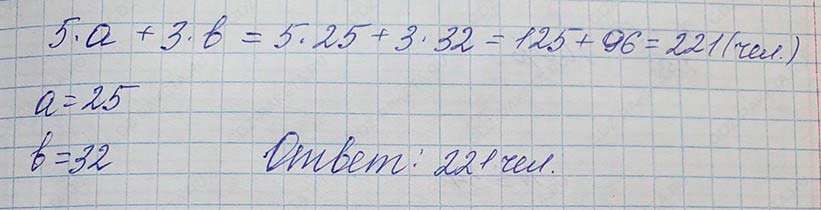 5·a + 3·b = 5·25 + 3·32 = 125 + 96 = 221 (чел.)
a = 25
b = 32
Ответ: 221 чел.